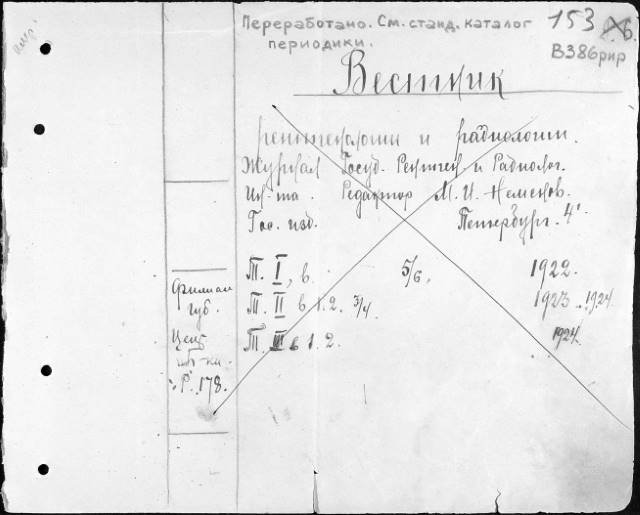 Переработано. См. станд. каталог
периодики.
153
В386рир
Вестник
рентгенологии и радиологии.
Журнал Госуд. Рентген. и Радиолог.
Ин-та. Редактор М. И. Неменов.
Гос. изд. Петербург. 4°
Т. I, в. 5/6, 1922.
Т. II в 1. 2. 3/4 1923. 1924.
Т. III в 1. 2. 1924.
Филиал
губ.
Цент
биб-ки.
P. 178.